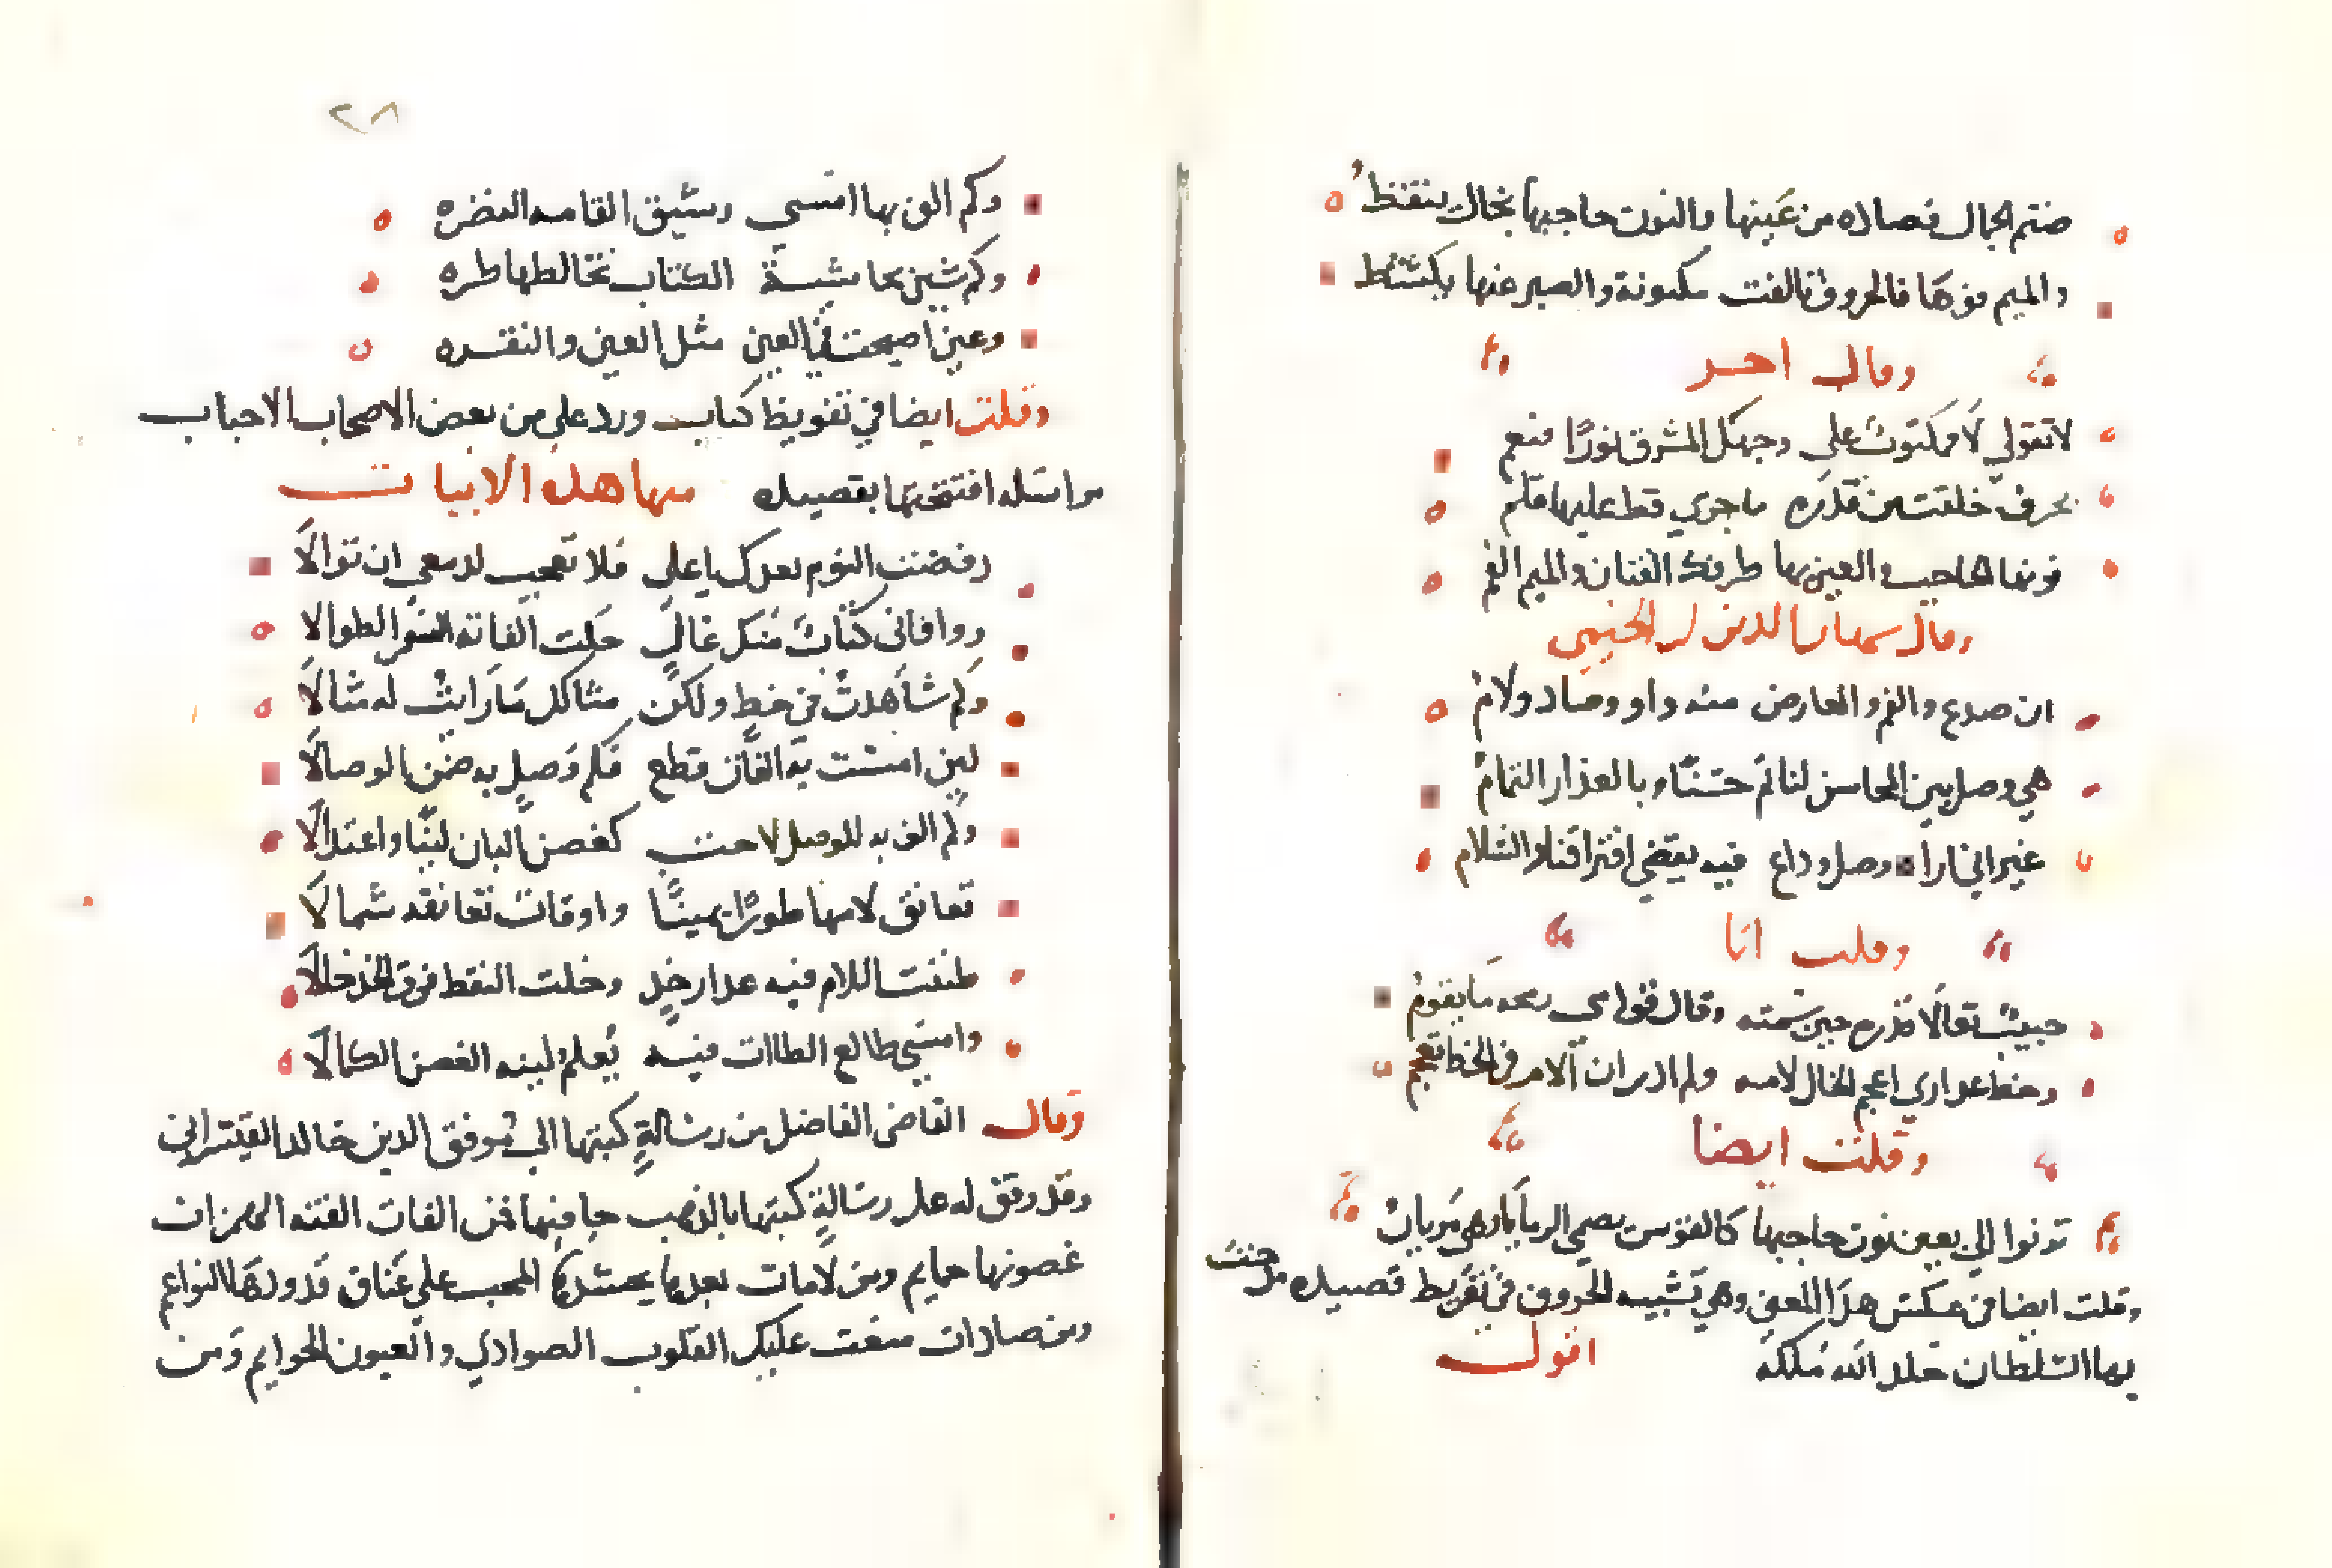 ختم الجمال فصاده من عينها والنون حاجبها بخال ينقط
والميم فوها فالحروف تالفت مكنونة والصبر عنها يكشط
وقال اخر
لا تقولي لا فمكتوب على وجهك المشرق نورا نعم
بحروف خلقت من قدره ما جري قط عليها قلم
نونها الحاجب والعين بها طرفك الفتان والميم الفم
وقال شهاب الدين الخيمي
ان صدغ والفم والعارض منه واو وصاد ولام
هي وصل بين المحاسن لنا تم حسنا بالعذار التمام
غير اني ارا وصل وداع فيه يقضي افتراقنا والسلام
وقلت انا
حبيب تعالا قدره حين سمته وقال قوامي ما يقوم
وخط عذاري اعجم الخال لامه ولم ادر ان اللام في الخط تعجم
وقلت ايضا
تدنوا الي بعين نون حاجبها كالقوس
وقلت ايضا في عكس هذا المعني وهي تشبيه الحروف في تقريظ قصيده مدحت
بها السلطان خلد الله ملكه اقول
٢٨
وكم الف بها امسي رشيق القامه النضره
وكم شين بحاشية الكتاب تخالطها طره
وعين اصبحت في العين مثل العين والنقره
وقلت ايضا في تقريظ كتاب ورد علي من بعض الاصحاب الاحباب
مراسله افتتحتها بقصيده منها هذه الابيات
رفضت النوم بعدك يا علي فلا تعجب لدمعي ان توالا
ووافاني كتاب منك غال حكت الفاته السمر الطوالا
وكم شاهدت من خط ولكن مثالك ما رايت له مثالا
لين امست به الفات قطع فكم وصل به ضمن الوصالا
وكم الف به للوصل لاحت كغصن البان لينا واعتدالا
تعانق لامها طورا يمينا واوقات تعانقه شمالا
ظننت اللام فيه عدار خد وخلت النقط فوق الخد خالا
وامسي طالع الطاات فيه يعلم لينه الغصن الكمالا
وقال القاضى الفاضل من رسالة كتبها الى موفق الدين خالد القيسراني
وقد وقف له على رسالة كتبها بالذهب جا فيها فمن الفات الفته الهمزات
غصونها حمايم ومن لامات بعدها يحسدها المحب على عناق قدودها النواعم
ومن صادات نقعت عليك القلوب الصوادي والعيون الحوايم ومن